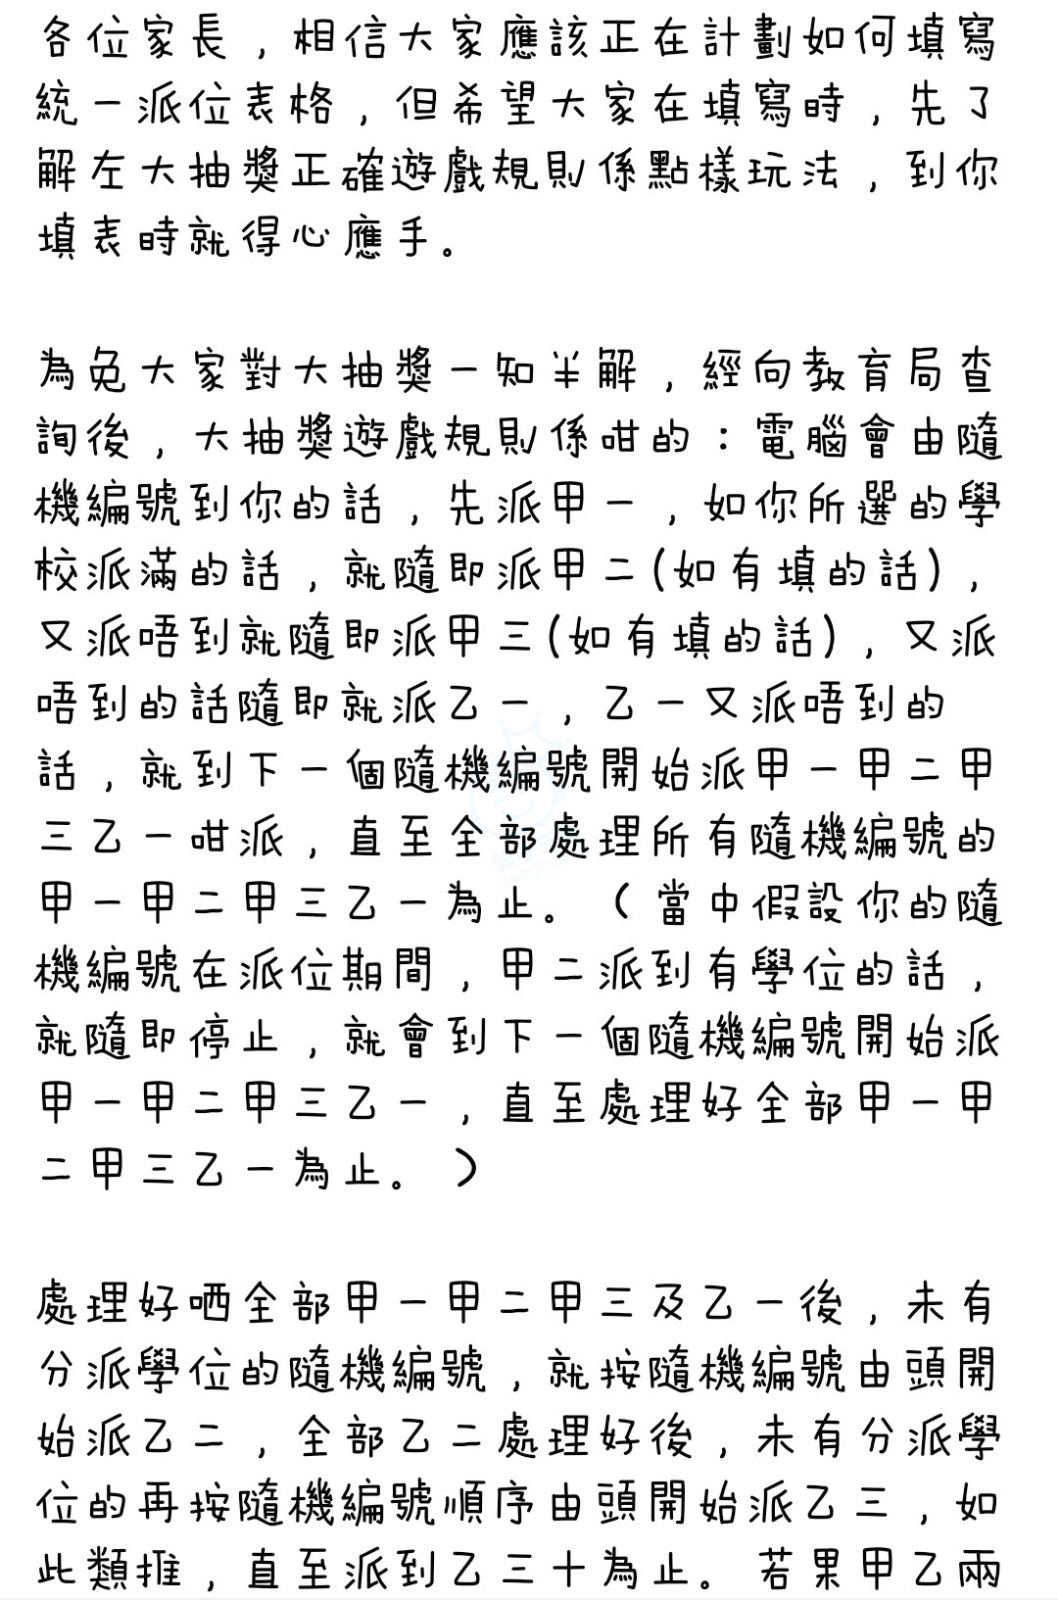 各位家長，相信大家應該正在計劃如何填寫
統一派位表格，但希望大家在填寫時，先了
解左大抽獎正確遊戲規則係點樣玩法，到你
填表時就得心應手。
為免大家對大抽獎一知半解，經向教育局查
詢後，大抽獎遊戲規則係咁的：電腦會由隨
機編號到你的話，先派甲一，如你所選的學
校派滿的話，就隨即派甲二(如有填的話)，
又派唔到就隨即派甲三(如有填的話)，又派
唔到的話隨即就派乙一，乙一又派唔到的
話，就到下一個隨機編號開始派甲一甲二甲
三乙一咁派，直至全部處理所有隨機編號的
甲一甲二甲三乙一為止。（當中假設你的隨
機編號在派位期間，甲二派到有學位的話，
就隨即停止，就會到下一個隨機編號開始派
甲一甲二甲三乙一，直至處理好全部甲一甲
二甲三乙一為止。）
處理好哂全部甲一甲二甲三及乙一後，未有
分派學位的隨機編號，就按隨機編號由頭開
始派乙二，全部乙二處理好後，未有分派學
位的再按隨機編號順序由頭開始派乙三，如
此類推，直至派到乙三十為止。若果甲乙兩